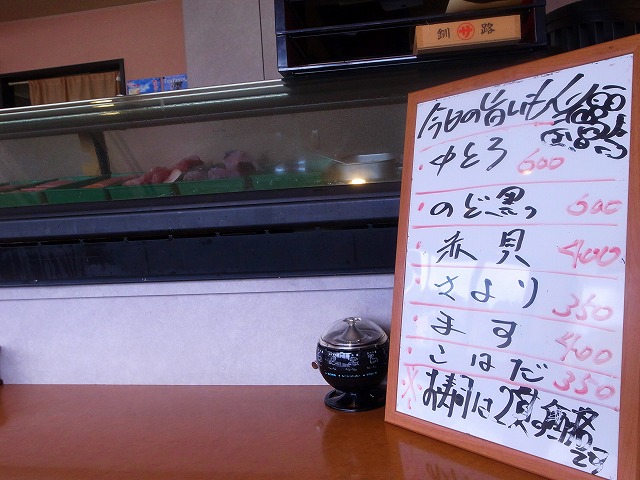 釧 サ 路
今日の旨いもん
・中とろ 600
・のど黒 600
・赤貝 400
・さより 350
・ます 400
・こはだ 350
※お寿司は2貫